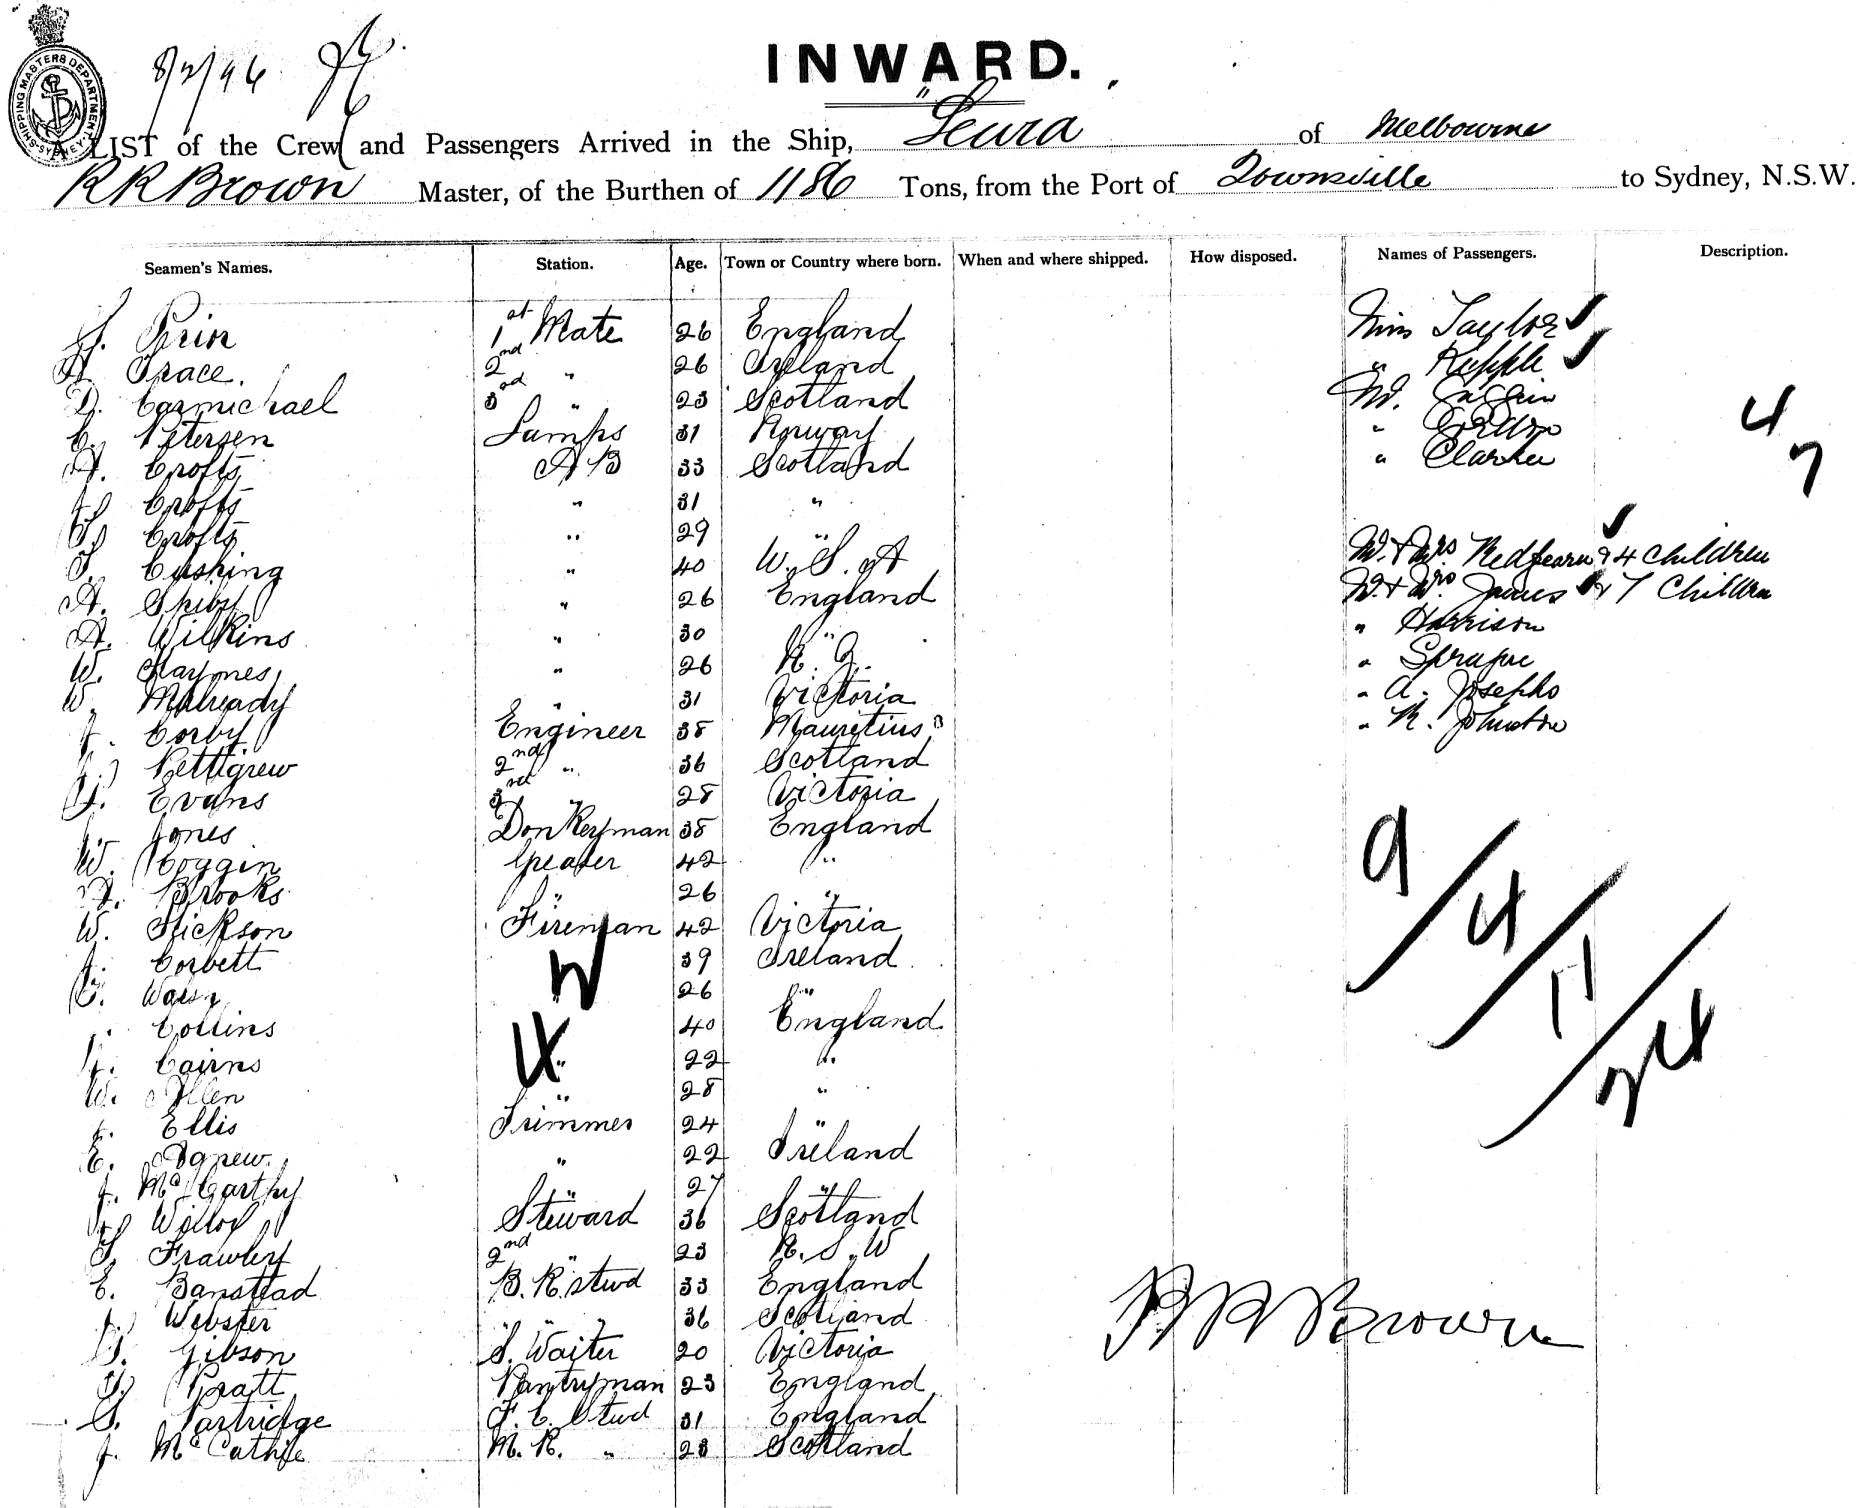 SHIPPING MASTERS DEPARTMENT SYDNEY
8/2/96
INWARD.
A LIST of the Crew and Passengers Arrived in the Ship, "Leura of Melbourne
R R Brown Master, of the Burthen of 1186 Tons, from the Port of Townsville to Sydney, N.S.W.
Seamen's Names. Station. Age. Town or Country where born. When and where shipped. How disposed. Names of Passengers. Description.
Prior 1st Mate 26 England Miss Taylor
Grace. 2nd " 26 Ireland "
D. Carmichael 3rd " 23 Scotland Mr.
C. Petersen Lamps 31 Norway "
A. Crofts A B 33 Scotland "
Crofts " 31 "
Crofts " 29 "
Cushing " 40 U. S. A Mr. & Mrs Redfearn & 4 Children
A. " 26 England Mr. & Mrs. James & 7 Children
A. Wilkins " 30 " " Harrison
W. Haymes " 26 N. Z. "
W. Mulready " 31 Victoria " A. Josephs
J. Corby Engineer 38 Mauritius " R. Johnston
Pettigrew 2nd " 36 Scotland
Evans 3rd " 28 Victoria
Jones Donkeyman 38 England
W. Coggin Greaser 42 "
Brooks " 26 "
W. Hickson Fireman 42 Victoria
J. Corbett 39 Ireland
26 "
Collins 40 England
Cairns " 22 "
W. Allen " 28 "
J. Ellis Trimmer 24 "
E. Agnew " 22 Ireland
J. McCarthy " 27 "
Steward 36 Scotland
Frawley 2nd " 23 N. S. W
E. Banstead B. R. Stwd 33 England
J. Webster " " 36 Scotland
Gibson S. Waiter 20 Victoria
Pratt Pantryman 23 England
Partridge F. C. Stwd 31 England
J. McCathie M. R. " 23 Scotland
4
7
9/4/11/24
R R Brown